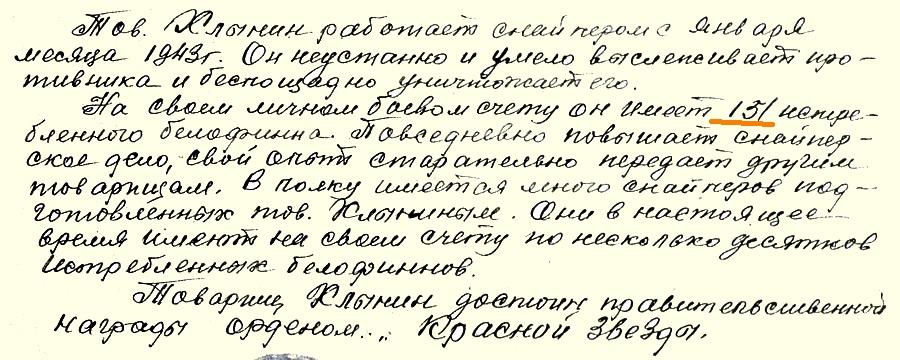 Тов. Клынин работает снайпером с января
месяца 1943г. Он неустанно и умело выслеживает про-
тивника и беспощадно уничтожает его.
На своем личном боевом счету он имеет 131 истре-
бленного белофинна. Повседневно повышает снайпер-
ское дело, свой опыт старательно передает другим
товарищам. В полку имеется много снайперов под-
готовленных тов. Клыниным. Они в настоящее
время имеют на своем счету по несколько десятков
истребленных белофиннов.
Товарищ Клынин достоин правительственной
награды орденом... Красной Звезды.